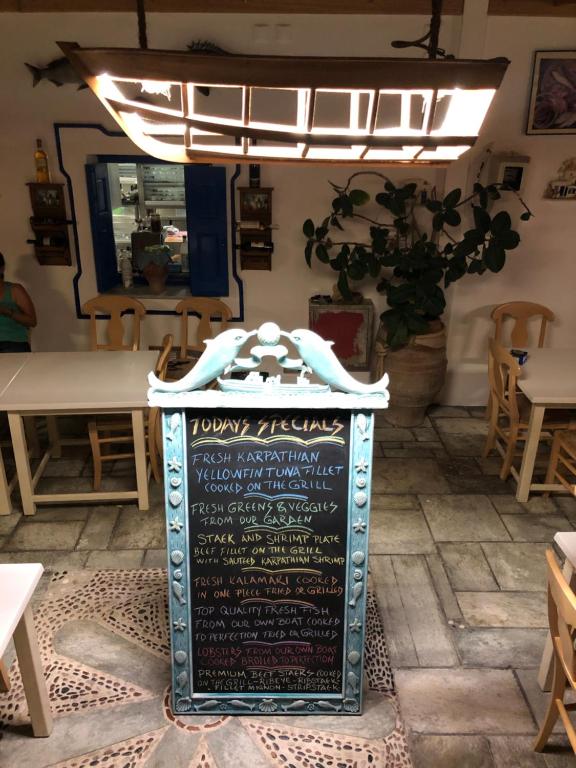 TODAYS SPECIALS
FRESH KARPATHIAN
YELLOWFIN TUNA FILLET
COOKED ON THE GRILL
FRESH GREENS & VEGGIES
FROM OUR GARDEN
STAEK AND SHRIMP PLATE
BEEF FILLET ON THE GRILL
WITH SAUTEED KARPATHIAN SHRIMP
FRESH KALAMARI COOKED
IN ONE PIECE FRIED OR GRILLED
TOP QUALITY FRESH FISH
FROM OUR OWN BOAT COOKED
TO PERFECTION FRIED OR GRILLED
LOBSTERS FROM OUR OWN BOAT
COOKED BROILED TO PERFECTION
PREMIUM BEEF STAEKS COOKED
ON THE GRILL - RIBEYE - RIBSTAEK
- FILLET MIGNON - STRIPSTAEK